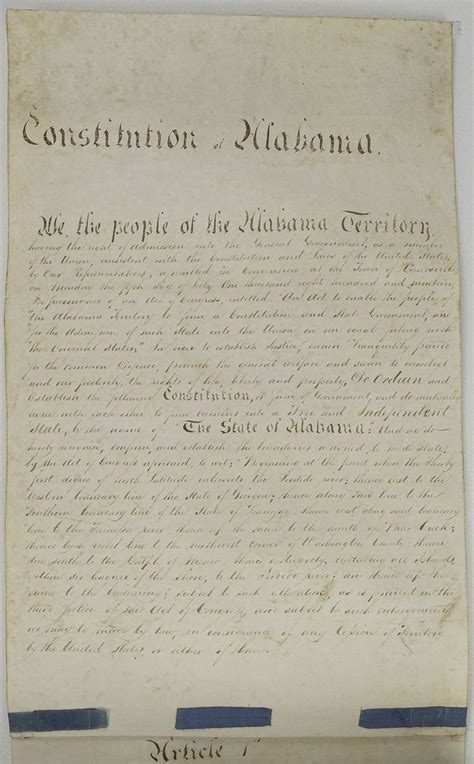 Constitution of Alabama.
We, the people of the Alabama Territory,
having the right of admission into the General Government, as a member
of the Union, consistent with the Constitution and Laws of the United States,
by Our Representatives, assembled in Convention at the Town of Huntsville
on Monday the fifth day of July One thousand eight hundred and nineteen,
In pursuance of an Act of Congress, entitled "An Act to enable the people of
the Alabama Territory to form a Constitution and State Government, and
for the Admission of such State into the Union on an equal footing with
the Original States," In order to establish Justice, ensure Tranquility, provide
for the Common Defence, promote the general welfare and secure to ourselves
and our posterity, the rights of life, liberty and property, Do Ordain and
Establish the following Constitution, or form of Government, and do mutually
agree with each other to form ourselves into a Free and Independent
State, by the name of "The State of Alabama." And we do
hereby recognize, confirm and establish the boundaries assigned to said State
by the Act of Congress aforesaid, to wit; "Beginning at the point where the Thirty
first degree of north Latitude the Perdido river; thence east to the
Western boundary line of the State of Georgia; thence along said line to the
Southern boundary line of the State of Tennessee; thence west along said boundary
line to the Tennessee river thence up the same to the mouth of Bear Creek;
thence by a direct line to the northwest corner of Washington County; thence
due south to the Gulf of Mexico; thence eastwardly, including all islands
within six leagues of the shore, to the Perdido river; and thence up the
same to the beginning; subject to such as is provided in the
third of said Act of Congress, and subject to such enlargement
as may be made by law, in consequence of any Cession of Territory
by the United States, or either of them.
Article 1st